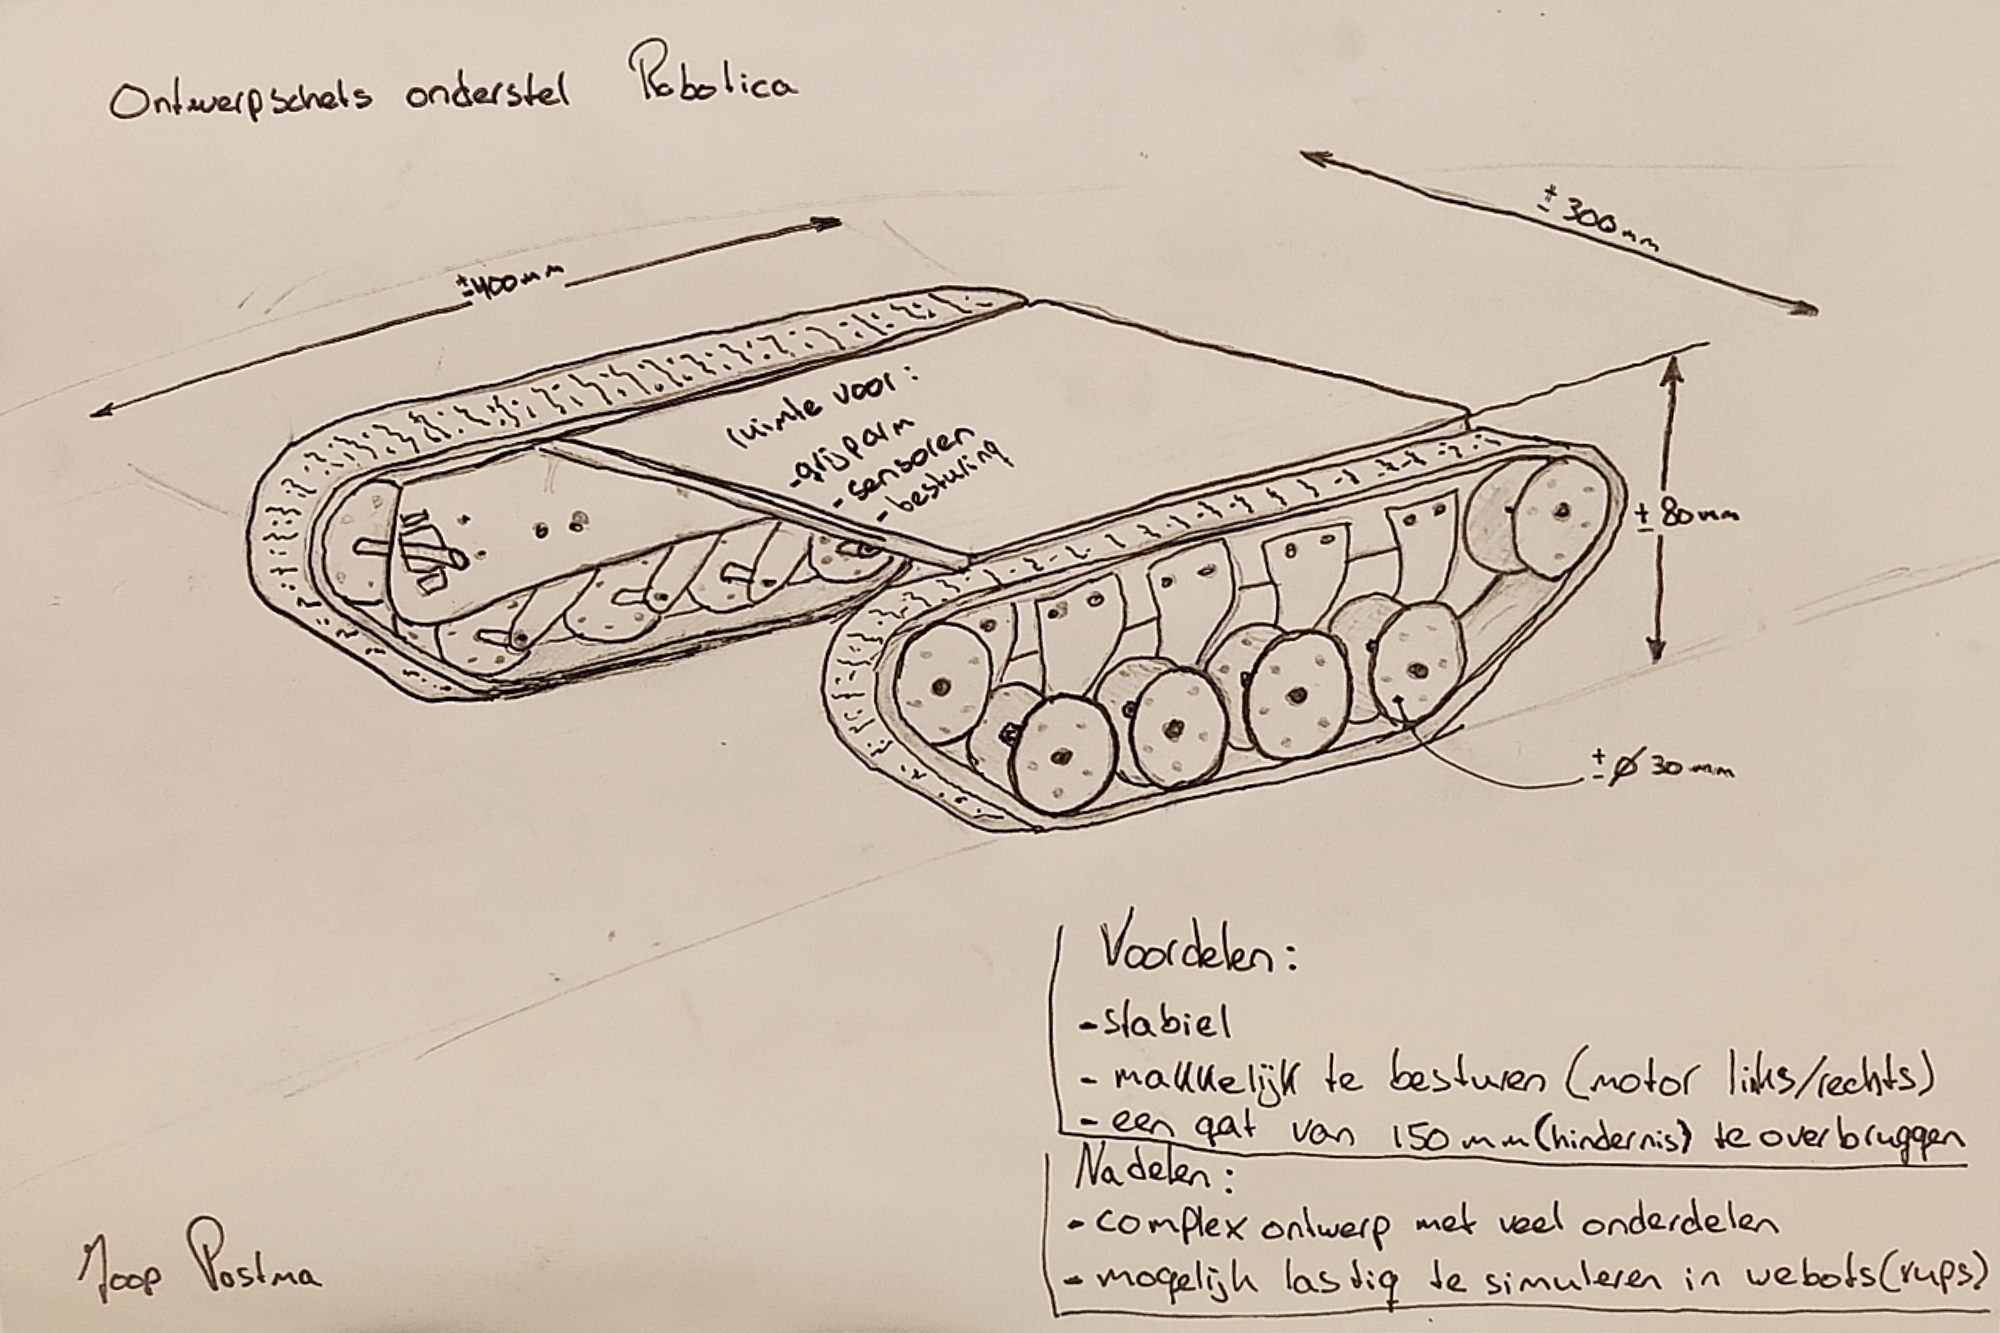 Ontwerpschets onderstel Robotica
± 300mm
±400mm
ruimte voor:
-grijparm
-sensoren
-besturing
± 80mm
± Ø 30mm
Voordelen:
-stabiel
- makkelijk te besturen (motor links/rechts)
- een gat van 150mm (hindernis) te overbruggen
Nadelen:
- complex ontwerp met veel onderdelen
- mogelijk lastig te simuleren in webots (rups)
Joop Postma